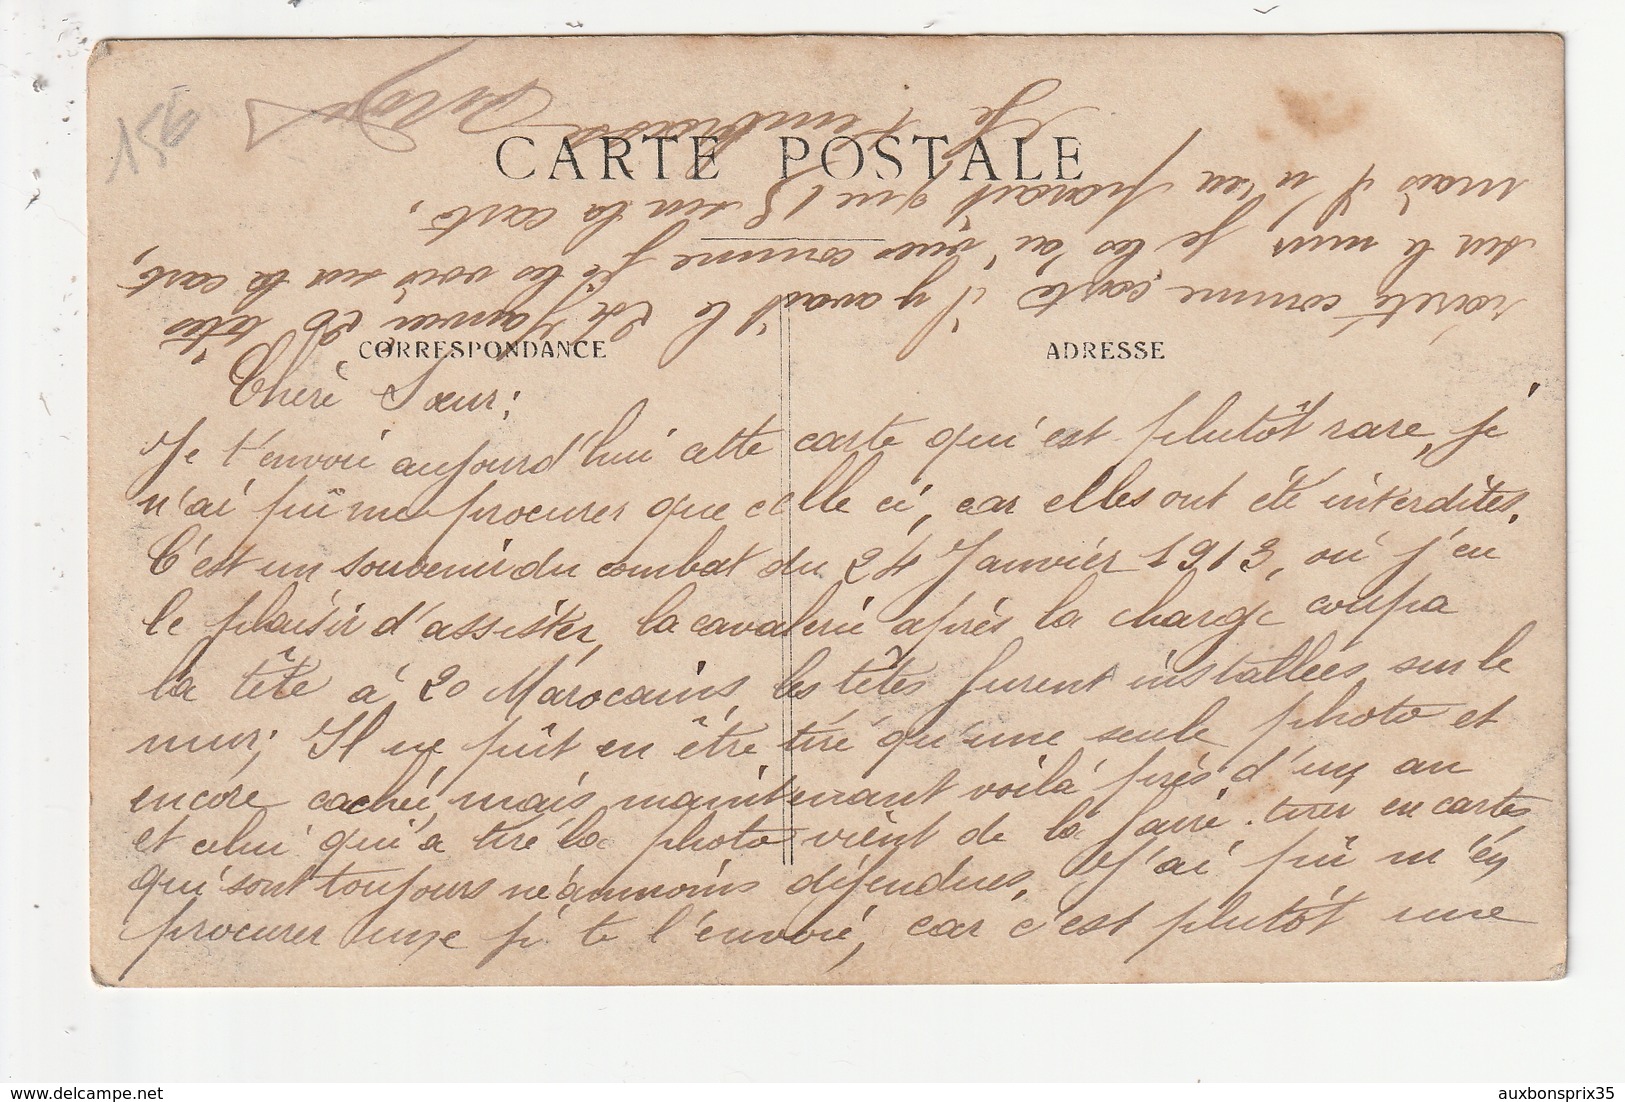 156
CARTE POSTALE
CORRESPONDANCE
ADRESSE
Chère Sœur;
Je t'envoie aujourd'hui cette carte qui est plutôt rare, je
n'ai pû me procurer que celle ci, car elles ont été interdites.
C'est un souvenir du combat du 24 Janvier 1913, où j'eu
le plaisir d'assister, la cavalerie après la charge coupa
la tête à 20 Marocains, les têtes furent installées sur le
mur; Il ne pût en être tiré qu'une seule photo et
encore caché, mais maintenant voilà près d'un an
et celui qui a tiré la photo vient de la faire tirer en cartes
qui sont toujours néanmoins défendues, J'ai pû m'en
procurer une je te l'envoie, car c'est plutôt une
rareté comme carte il y avait le 24 Janvier 20 têtes
sur le mur je les ai vues comme je les vois sur la carte,
mais il n'en parait que 18 sur la carte.
Je t'embrasse
auxbonsprix35